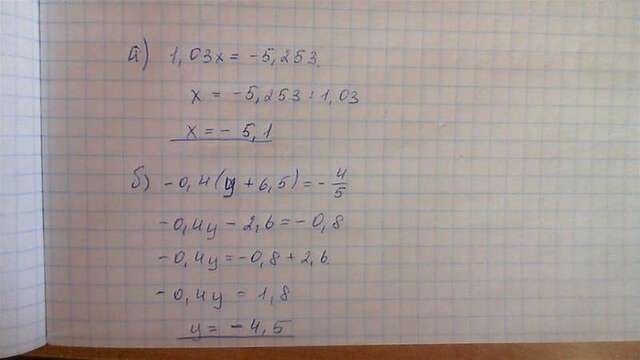 а) 1,03x = -5,253.
x = -5,253 : 1,03
x = - 5,1
б) -0,4(y + 6,5) = - 4/5
-0,4y - 2,6 = -0,8
-0,4y = -0,8 + 2,6.
-0,4y = 1,8
y = - 4,5